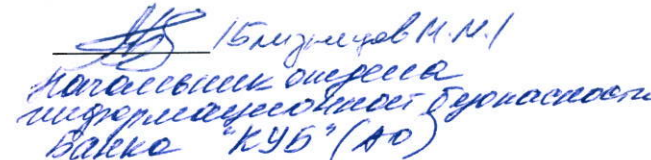 /Близнецов М.М./
Начальник отдела
информационной безопасности
Банка "КУБ" (АО)